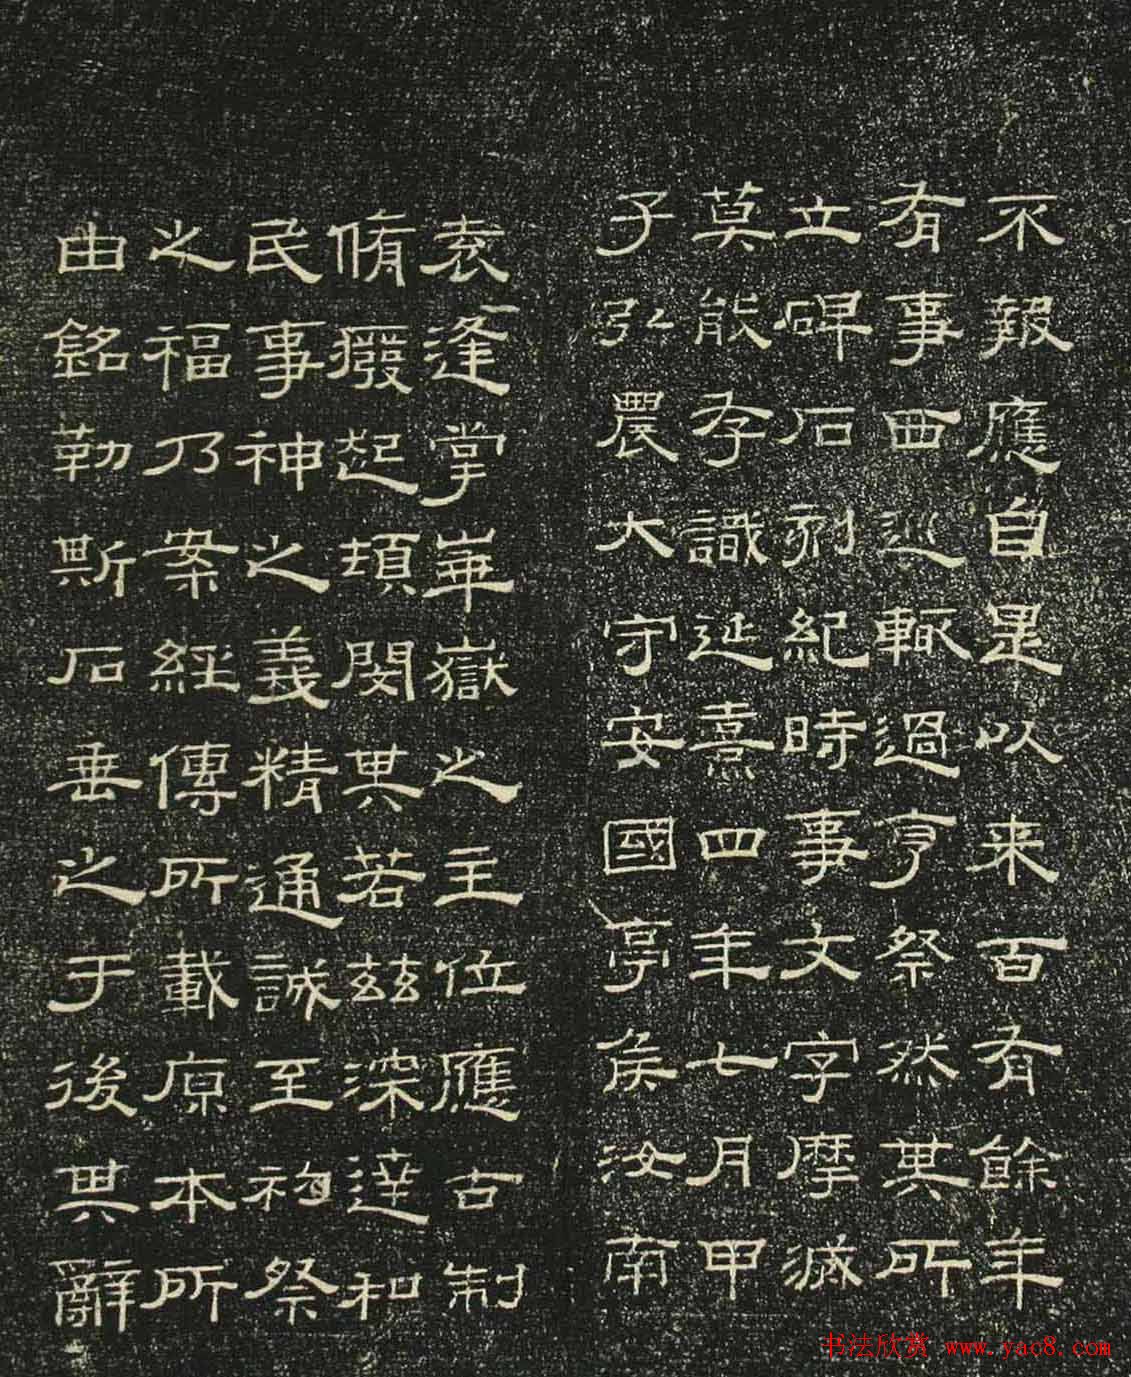 不報應自是以来百有餘年
有事西巡輒過亨祭然其所
立碑石刻紀時事文字摩滅
莫能存識延熹四年七月甲
子弘農大守安國亭侯汝南
袁逢掌華嶽之主位應古制
脩癈起頓閔其若兹深達和
民事神之義精通誠至礿祭
之福乃案經傳所載原本所
由銘勒斯石垂之于後其辭
书法欣赏 www.yac8.com